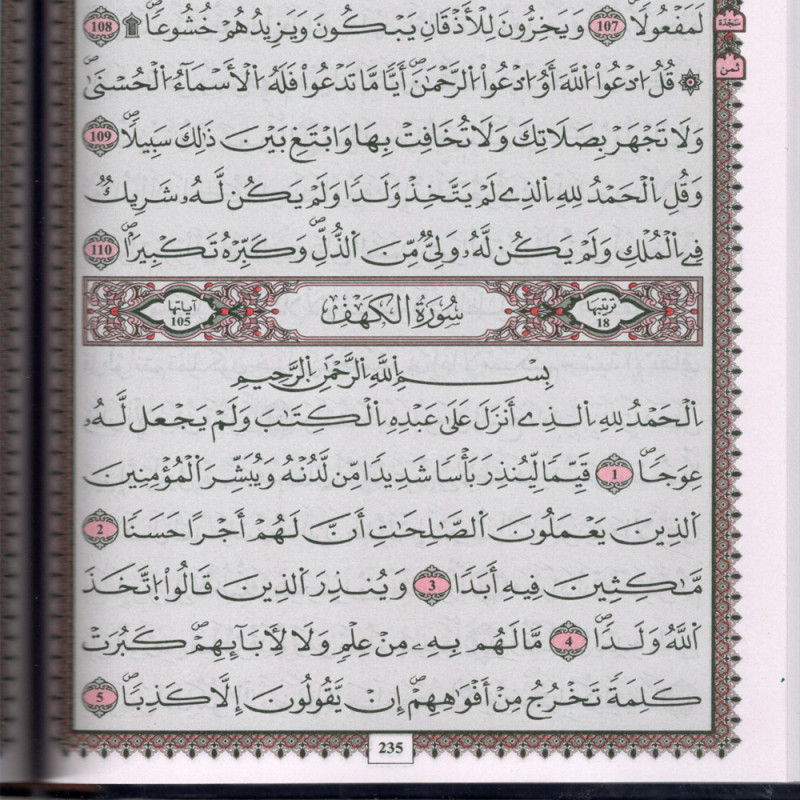 لَمَفْعُولٗاۖ 107 وَيَخِرُّونَ لِلْأَذْقَانِ يَبْكُونَ وَيَزِيدُهُمْ خُشُوعاًۖ ۩ 108 سَجْدَة
۞ قُلُ اُ۟دْعُوا۟ اُ۬للَّهَ أَوُ اُ۟دْعُوا۟ اُ۬لرَّحْمَٰنَۖ أَيّاٗ مَّا تَدْعُوا۟ فَلَهُ اُ۬لْأَسْمَآءُ اُ۬لْحُسْنَىٰۖ ثمن
وَلَا تَجْهَرْ بِصَلَاتِكَ وَلَا تُخَافِتْ بِهَا وَابْتَغِ بَيْنَ ذَٰلِكَ سَبِيلاٗۖ 109
وَقُلِ اِ۬لْحَمْدُ لِلهِ اِ۬لذِے لَمْ يَتَّخِذْ وَلَداٗ وَلَمْ يَكُن لَّهُۥ شَرِيكٞ
فِے اِ۬لْمُلْكِ وَلَمْ يَكُن لَّهُۥ وَلِيّٞ مِّنَ اَ۬لذُّلِّۖ وَكَبِّرْهُ تَكْبِيراًۖ 110
ترتيبها 18 سُورَةُ الكَهْفِ آياتها 105
بِسْمِ اِ۬للَّهِ اِ۬لرَّحْمَٰنِ اِ۬لرَّحِيمِ
اِ۬لْحَمْدُ لِلهِ اِ۬لذِے أَنزَلَ عَلَىٰ عَبْدِهِ اِ۬لْكِتَٰبَ وَلَمْ يَجْعَل لَّهُۥ
عِوَجاٗۖ 1 قَيِّماٗ لِّيُنذِرَ بَأْساٗ شَدِيداٗ مِّن لَّدُنْهُ وَيُبَشِّرَ اَ۬لْمُؤْمِنِينَ
اَ۬لذِينَ يَعْمَلُونَ اَ۬لصَّٰلِحَٰتِ أَنَّ لَهُمْ أَجْراً حَسَناٗ 2
مَّٰكِثِينَ فِيهِ أَبَداٗ 3 وَيُنذِرَ اَ۬لذِينَ قَالُوا۟ اُ۪تَّخَذَ
اَ۬للَّهُ وَلَداٗۖ 4 مَّا لَهُم بِهِۦ مِنْ عِلْمٖ وَلَا لِأٓبَآئِهِمْۖ كَبُرَتْ
كَلِمَةٗ تَخْرُجُ مِنْ أَفْوَٰهِهِمْۖ إِنْ يَّقُولُونَ إِلَّا كَذِباٗۖ 5
235